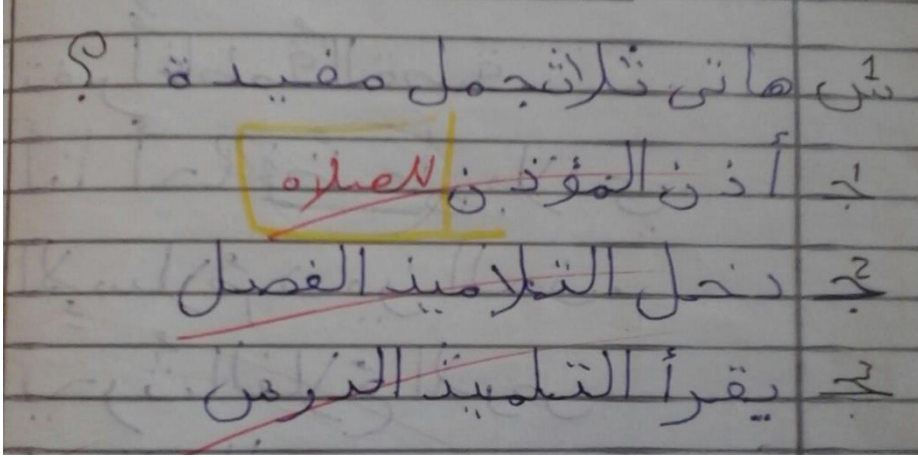 س1 هاتى ثلاث جمل مفيدة ؟
ج1 أذن المؤذن للصلاه
ج2 دخل التلاميذ الفصل
ج3 يقرأ التلميذ الدرس